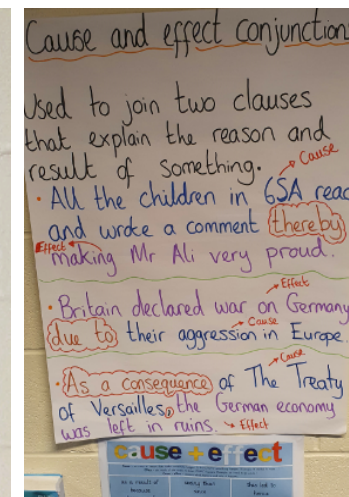 Cause and effect conjunction
Used to join two clauses
that explain the reason and
result of something.
Cause
• All the children in 6SA reac
and wrote a comment thereby
Effect
making Mr Ali very proud.
Effect
• Britain declared war on Germany
due to their aggression in Europe.
Cause
Cause
• As a consequence of The Treaty
of Versailles, the German economy
was left in ruins. Effect
cause + effect
as a result of
because